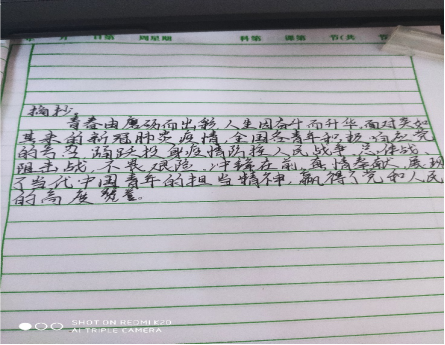 年 月 日第 周星期 科第 课第 节(共 节
摘抄
青春由磨砺而出彩,人生因奋斗而升华。面对突如
其来的新冠肺炎疫情,全国各青年积极响应党
的号召,踊跃投身疫情防控人民战争、总体战、
阻击战,不畏艰险、冲锋在前、真情奉献,展现
了当代中国青年的担当精神,赢得了党和人民
的高度赞誉。
SHOT ON REDMI K20
AI TRIPLE CAMERA